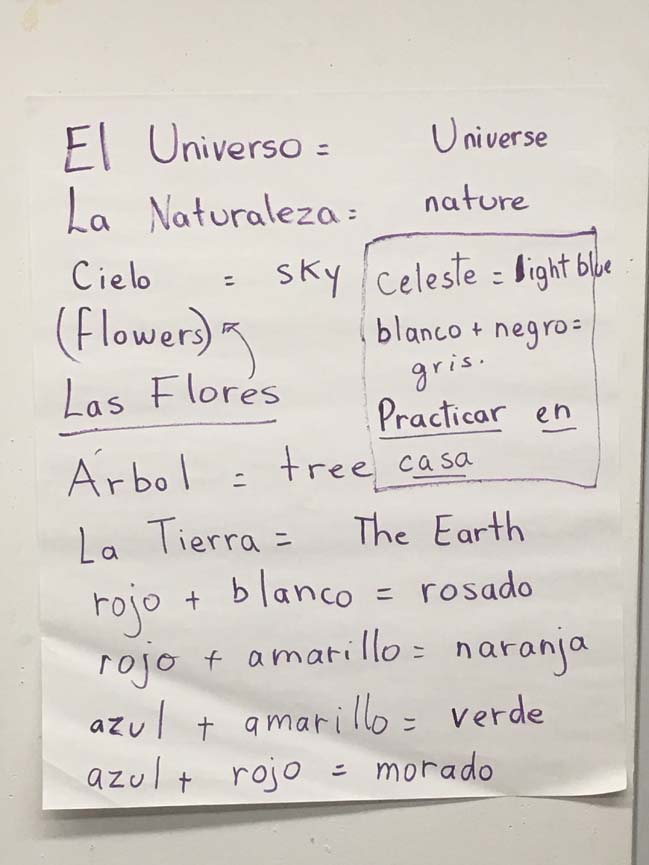 El Universo = Universe
La Naturaleza = nature
Cielo = sky
(flowers)
Las Flores
celeste = light blue
blanco + negro =
gris.
Practicar en
casa
Árbol = tree
La Tierra = The Earth
rojo + blanco = rosado
rojo + amarillo = naranja
azul + amarillo = verde
azul + rojo = morado